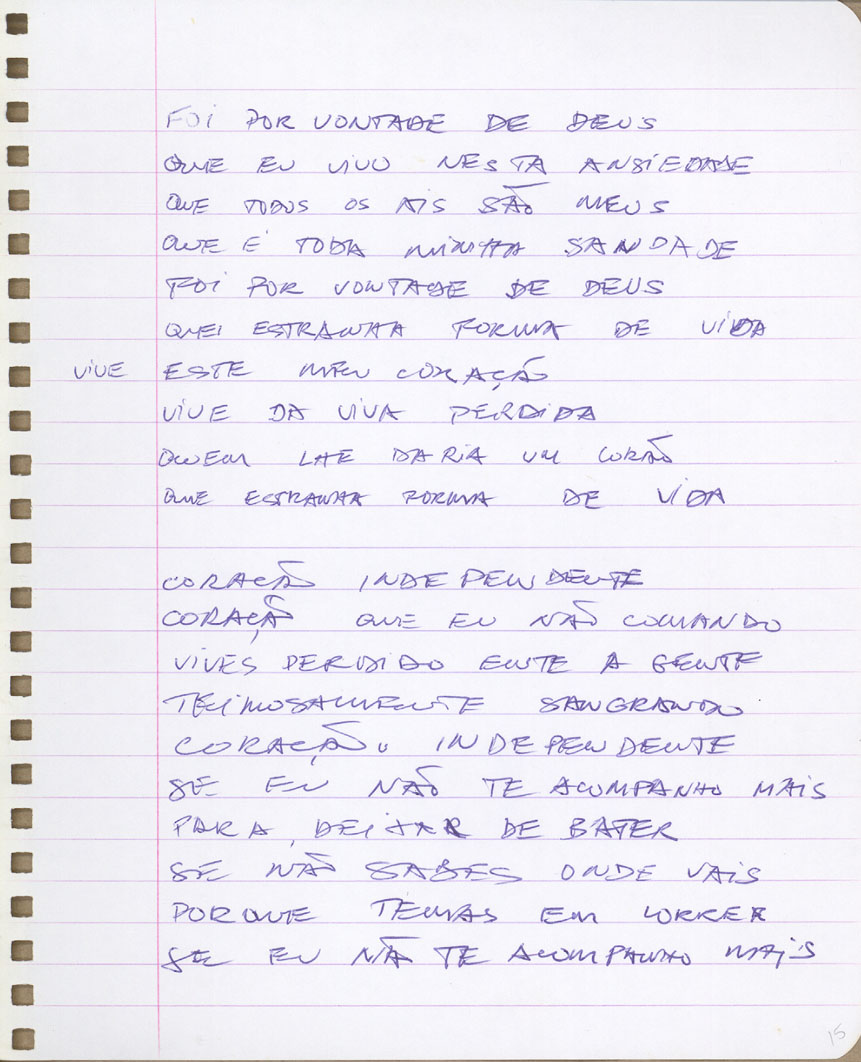 FOI POR VONTADE DE DEUS
QUE EU VIVO NESTA ANSIEDADE
QUE TODOS OS AIS SÃO MEUS
QUE É TODA MINHA SANDADE
FOI POR VONTADE DE DEUS
QUEI ESTRANHA FORMA DE VIDA
VIVE ESTE MEU CORAÇÃO
VIVE DA VIVA PERDIDA
QUEM LHE DARIA UM CORÃO
QUE ESTRANHA FORMA DE VIDA
CORAÇÃO INDEPENDENTE
CORAÇÃ QUE EU NÃO COMANDO
VIVES PERDIDO ENTE A GENTE
TEIMOSAMENTE SANGRANDO
CORAÇÃO INDEPENDENTE
SE EU NÃO TE ACOMPANHO MAIS
PARA, DEIXAR DE BATER
SE NÃO SABES ONDE VAIS
PORQUE TEMAS EM CORRER
SE EU NÃO TE ACOMPANHO MAIS
15